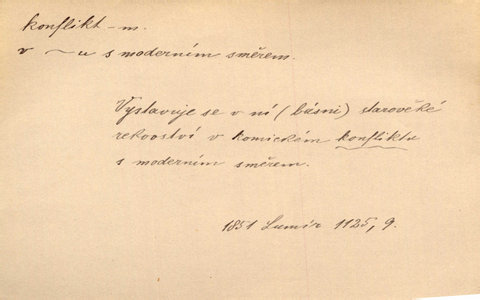 konflikt -m.
v ~u s moderním směrem.
Vystavuje se v ní (básni) starověké
rekovství v komickém konfliktu
s moderním směrem.
1851 Lumír 1125, 9.